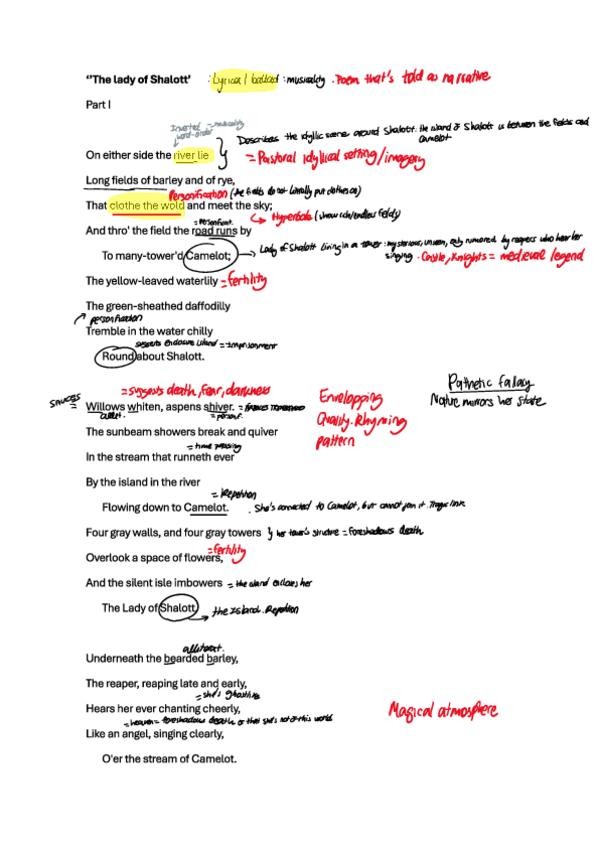 "The lady of Shalott' : Lyrical / ballad : musicality . Poem that's told as narrative
Part I
Inverted = musicality
word-order
Describes the idyllic scene around Shalott. the island of Shalott is between the fields and
Camelot
On either side the river lie
= Pastoral idyllical setting/imagery
Long fields of barley and of rye,
Personification (the fields do not literally put clothes on)
That clothe the wold and meet the sky;
→ Hyperbole (show rich/endless fields)
= Personificat.
And thro' the field the road runs by
To many-tower'd Camelot; → Lady of Shalott living in a tower : mysterious, unseen, only rumored by reapers who hear her
singing . Castle, Knights = medieval legend
The yellow-leaved waterlily = fertility
The green-sheathed daffodilly
personification
Tremble in the water chilly
suggests enclosure island = imprisonment
Round about Shalott.
Pathetic fallacy
Nature mirrors her state
= suggests death, fear, darkness
Willows whiten, aspens shiver.
allit. = personif.
Envelopping
Quality. Rhyming
pattern
The sunbeam showers break and quiver
= time passing
In the stream that runneth ever
By the island in the river
= Repetition
Flowing down to Camelot. . She's connected to Camelot, but cannot join it. Tragic link
Four gray walls, and four gray towers } her tower's structure = foreshadows death
Overlook a space of flowers, = fertility
And the silent isle imbowers = the island encloses her
The Lady of Shalott. → the Island. Repetition
alliterat.
Underneath the bearded barley,
The reaper, reaping late and early,
= she's ghostlike
Hears her ever chanting cheerly,
= heaven = foreshadows death or that she's not of this world
Magical atmosphere
Like an angel, singing clearly,
O'er the stream of Camelot.